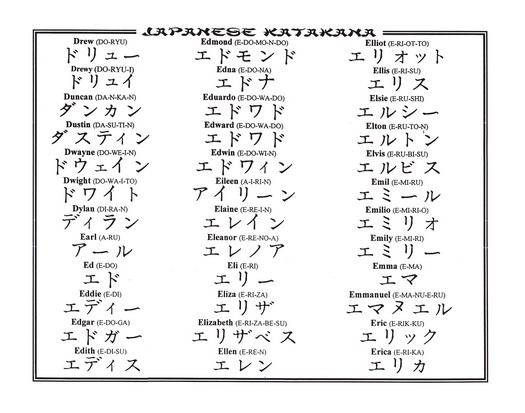 JAPANESE KATAKANA
Drew (DO-RYU)
ドリュー
Drewy (DO-RYU-I)
ドリュイ
Duncan (DA-N-KA-N)
ダンカン
Dustin (DA-SU-TI-N)
ダスティン
Dwayne (DO-WE-I-N)
ドウェイン
Dwight (DO-WA-I-TO)
ドワイト
Dylan (DI-RA-N)
ディラン
Earl (A-RU)
アール
Ed (E-DO)
エド
Eddie (E-DI)
エディー
Edgar (E-DO-GA)
エドガー
Edith (E-DI-SU)
エディス
Edmond (E-DO-MO-N-DO)
エドモンド
Edna (E-DO-NA)
エドナ
Eduardo (E-DO-WA-DO)
エドワド
Edward (E-DO-WA-DO)
エドワド
Edwin (E-DO-WI-N)
エドウィン
Eileen (A-I-RI-N)
アイリーン
Elaine (E-RE-I-N)
エレイン
Eleanor (E-RE-NO-A)
エレノア
Eli (E-RI)
エリー
Eliza (E-RI-ZA)
エリザ
Elizabeth (E-RI-ZA-BE-SU)
エリザベス
Ellen (E-RE-N)
エレン
Elliot (E-RI-OT-TO)
エリオット
Ellis (E-RI-SU)
エリス
Elsie (E-RU-SHI)
エルシー
Elton (E-RU-TO-N)
エルトン
Elvis (E-RU-BI-SU)
エルビス
Emil (E-MI-RU)
エミール
Emilio (E-MI-RI-O)
エミリオ
Emily (E-MI-RI)
エミリー
Emma (E-MA)
エマ
Emmanuel (E-MA-NU-E-RU)
エマヌエル
Eric (E-RIK-KU)
エリック
Erica (E-RI-KA)
エリカ